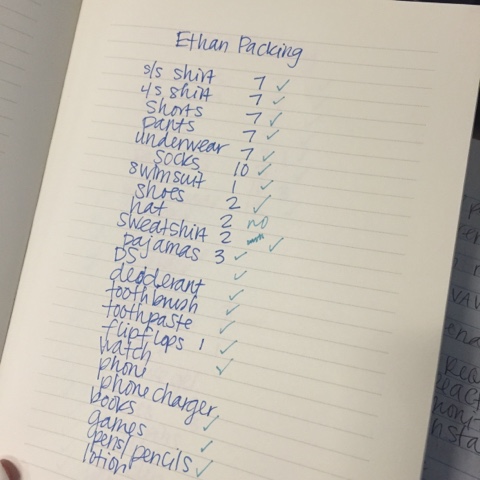 Ethan Packing
s/s shirt 7 ✓
l/s shirt 7 ✓
shorts 7 ✓
pants 7 ✓
underwear 7 ✓
socks 10 ✓
swimsuit 1 ✓
shoes 2 ✓
hat 2 no
sweatshirt 2 ✓
pajamas 3 ✓
DS ✓
deoderant ✓
toothbrush ✓
toothpaste ✓
flipflops 1 ✓
watch ✓
phone
phone charger
books ✓
games ✓
pens/pencils ✓
lotion